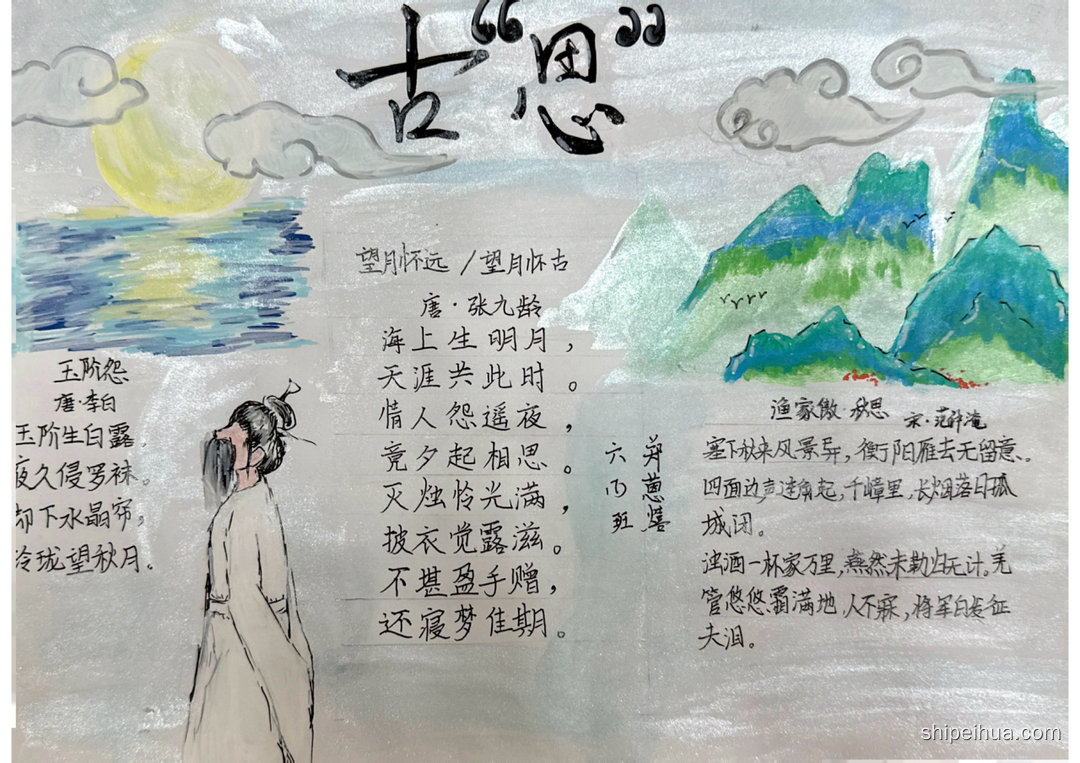 古“思”
望月怀远 /望月怀古
唐·张九龄
海上生明月，
天涯共此时。
情人怨遥夜，
竟夕起相思。
灭烛怜光满，
披衣觉露滋。
不堪盈手赠，
还寝梦佳期。
玉阶怨
唐·李白
玉阶生白露，
夜久侵罗袜。
却下水晶帘，
玲珑望秋月。
郑蒽熺
六 班
渔家傲·秋思 宋·范仲淹
塞下秋来风景异，衡阳雁去无留意。
四面边声连角起，千嶂里，长烟落日孤
城闭。
浊酒一杯家万里，燕然未勒归无计。羌
管悠悠霜满地 人不寐，将军白发征
夫泪。
shipeihua.com